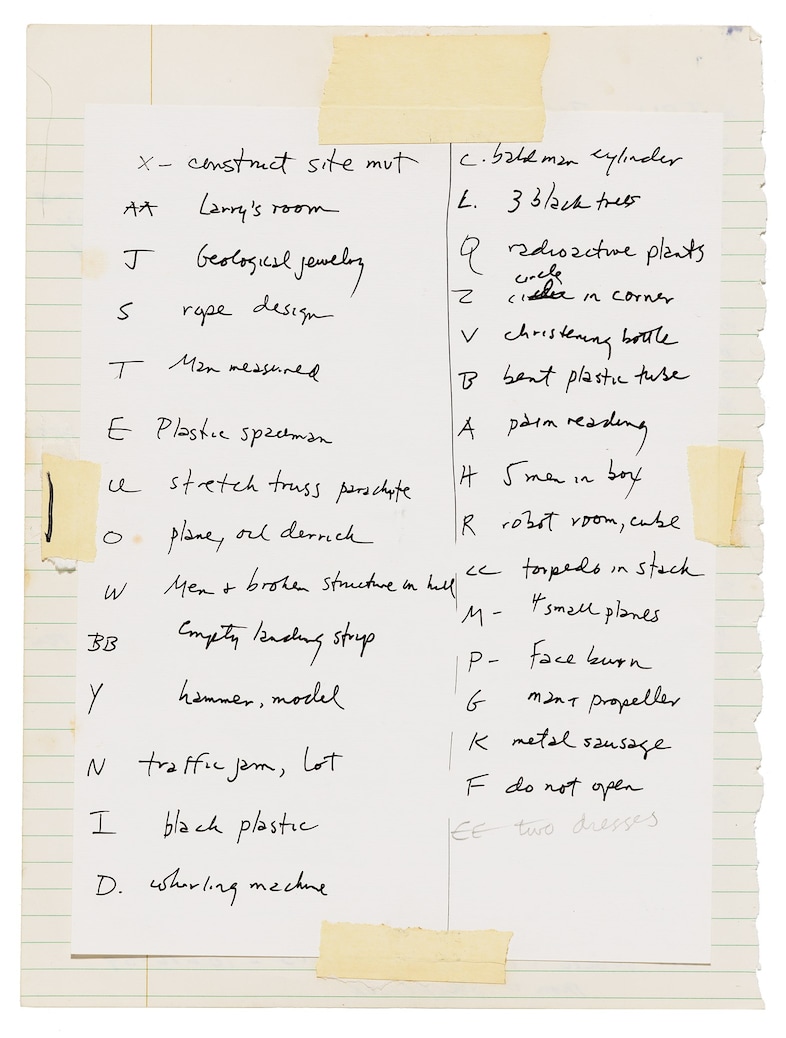 X - construct site mut
AA Larry's room
J Geological jewelry
S rope design
T Man measured
E Plastic spaceman
U stretch truss parachute
O plane, oil derrick
W Men & broken structure on hill
BB Empty landing strip
Y hammer, model
N traffic jam, lot
I black plastic
D. whirling machine
C. bald man cylinder
L. 3 black trees
Q radioactive plants
circle
Z in corner
V christening bottle
B bent plastic tube
A palm reading
H 5 men in box
R robot room, cube
CC torpedo in stack
M - 4 small planes
P - Face burn
G man + propeller
K metal sausage
F do not open
EE two dresses